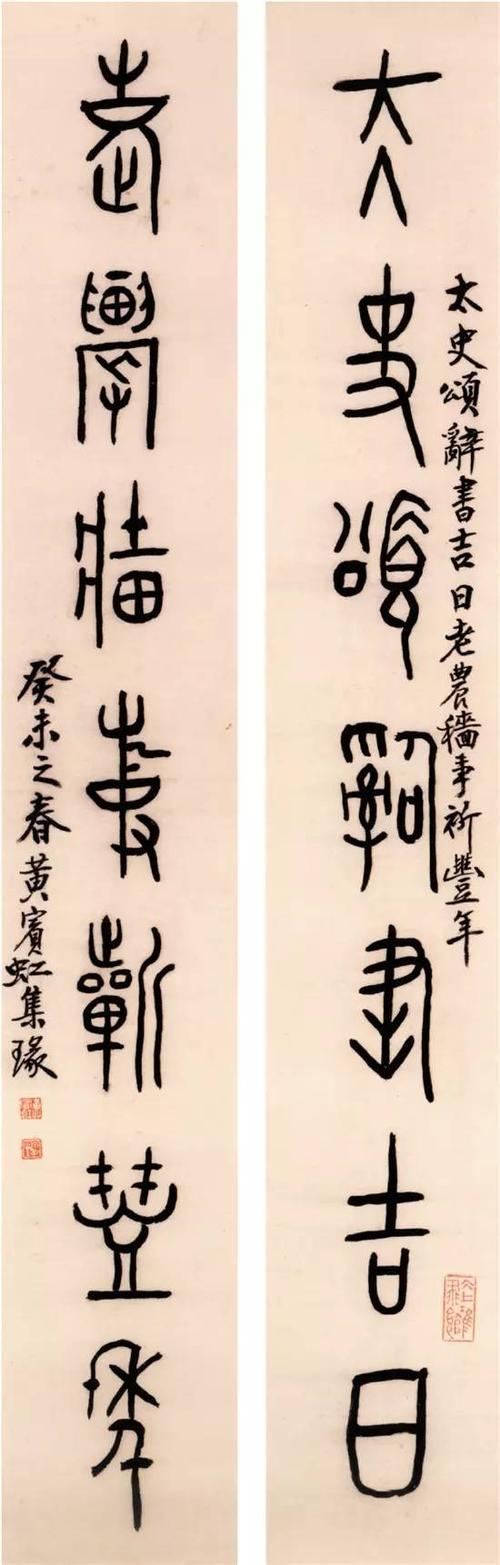 大史頌辭書吉日
太史頌辭書吉日老農穡事祈豐年
老農牆事蘄豐年
癸未之春黃賓虹集瑑